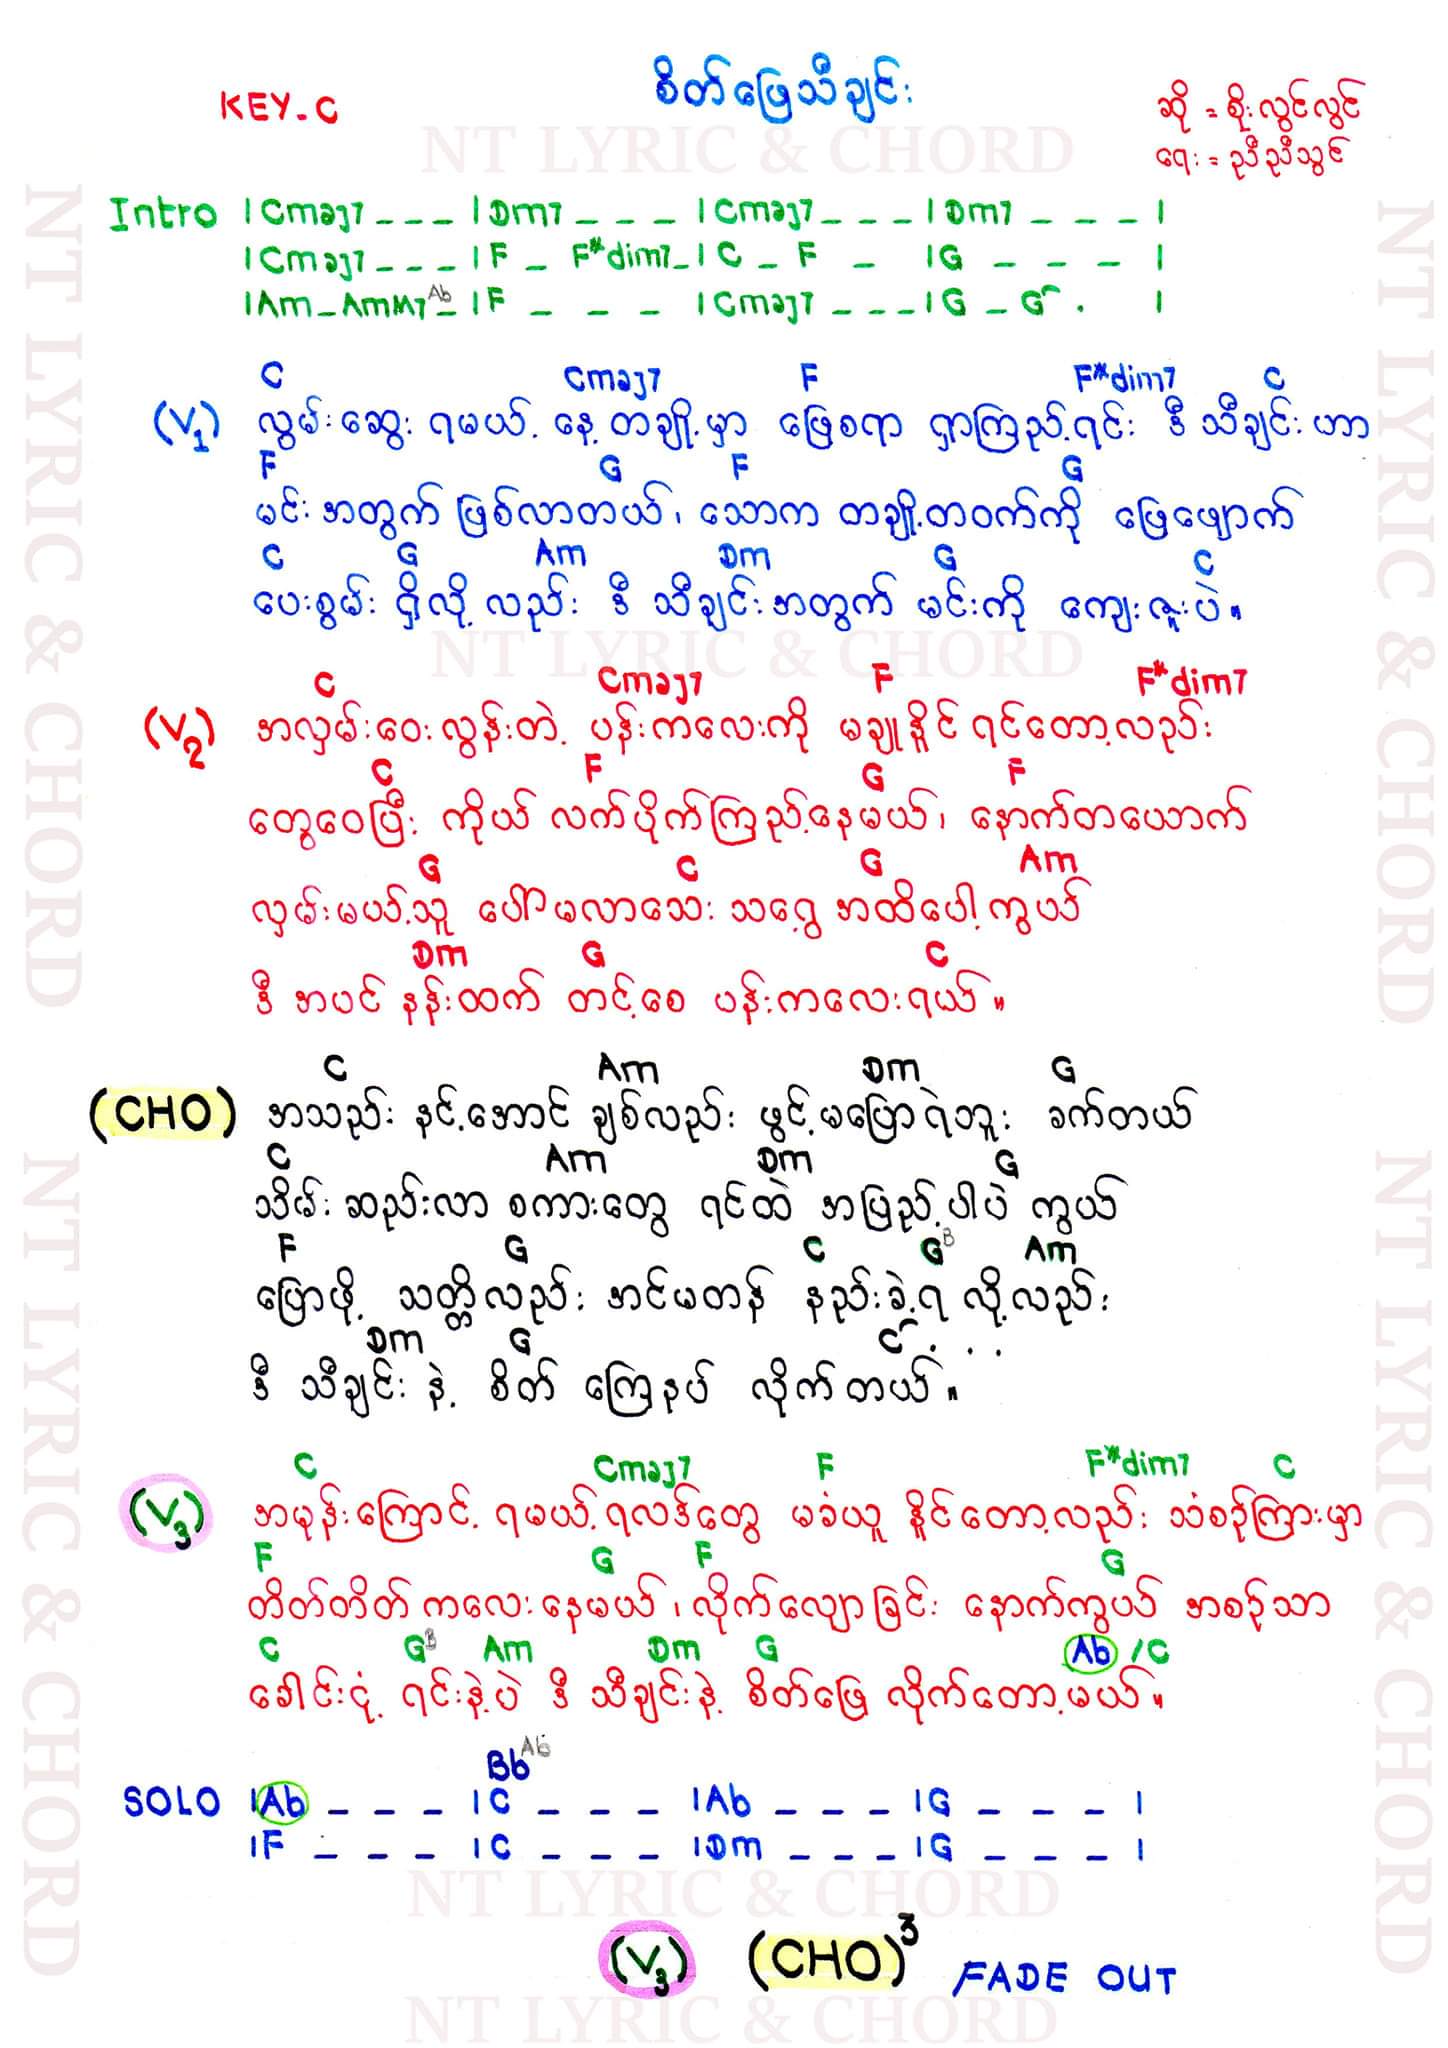 စိတ်ဖြေသီချင်း
KEY-C
ဆို = စိုးလွင်လွင်
ရေး = ညီညီသွင်
NT LYRIC & CHORD
Intro |Cmaj7 _ _ _ |Dm7 _ _ _ |Cmaj7 _ _ _ |Dm7 _ _ _ |
|Cmaj7 _ _ _ |F _ F#dim7 _ |C _ F _ |G _ _ _ |
|Am _ AmM7 Ab _ |F _ _ _ |Cmaj7 _ _ _ |G _ G . |
C Cmaj7 F F#dim7 C
(V1) လွမ်းဆွေး ရမယ့် နေ့တချို့မှာ ဖြေစရာ ရှာကြည့်ရင်း ဒီ သီချင်း ဟာ
F G F G
မင်း အတွက် ဖြစ်လာတယ်၊ သောက တချို့တဝက်ကို ဖြေဖျောက်
C G Am Dm G C
ပေးစွမ်း ရှိလို့ လည်း ဒီ သီချင်း အတွက် မင်းကို ကျေးဇူးပဲ။
NT LYRIC & CHORD
C Cmaj7 F F#dim7
(V2) အလှမ်းဝေး လွန်းတဲ့ ပန်းကလေးကို မချူနိူင် ရင်တော့လည်း
C F G F
တွေဝေပြီး ကိုယ် လက်ပိုက်ကြည့်နေမယ်၊ နောက်တယောက်
G C G Am
လှမ်းမယ့်သူ ပေါ်မလာသေး သရွေ့ အထိပေါ့ ကွယ်
Dm G C
ဒီ အပင် နန်းထက် တင့်စေ ပန်းကလေးရယ်။
C Am Dm G
(CHO) အသည်း နင့်အောင် ချစ်လည်း ဖွင့်မပြောရဲဘူး ခက်တယ်
C Am Dm G
သိမ်း ဆည်းလာ စကားတွေ ရင်ထဲ အပြည့်ပါပဲ ကွယ်
F G C G B Am
ပြောဖို့ သတ္တိလည်း အင်မတန် နည်းခဲ့ရ လို့လည်း
Dm G C . . .
ဒီ သီချင်း နဲ့ စိတ် ကြေနပ် လိုက်တယ်။
C Cmaj7 F F#dim7 C
(V3) အမုန်းကြောင့် ရမယ့်ရလဒ်တွေ မခံယူ နိူင်တော့လည်း သံစဉ်ကြားမှာ
F G F G
တိတ်တိတ် ကလေးနေမယ်၊ လိုက်လျောခြင်း နောက်ကွယ် အစဉ်သာ
C G B Am Dm G Ab /C
ခေါင်းငုံ့ ရင်းနဲ့ပဲ ဒီ သီချင်းနဲ့ စိတ်ဖြေ လိုက်တော့မယ်။
Bb Ab
SOLO |Ab _ _ _ |C _ _ _ |Ab _ _ _ |G _ _ _ |
|F _ _ _ |C _ _ _ |Dm _ _ _ |G _ _ _ |
NT LYRIC & CHORD
(V3) (CHO)3 FADE OUT
NT LYRIC & CHORD
NT LYRIC & CHORD
NT LYRIC & CHORD
NT LYRIC & CHORD
NT LYRIC & CHORD